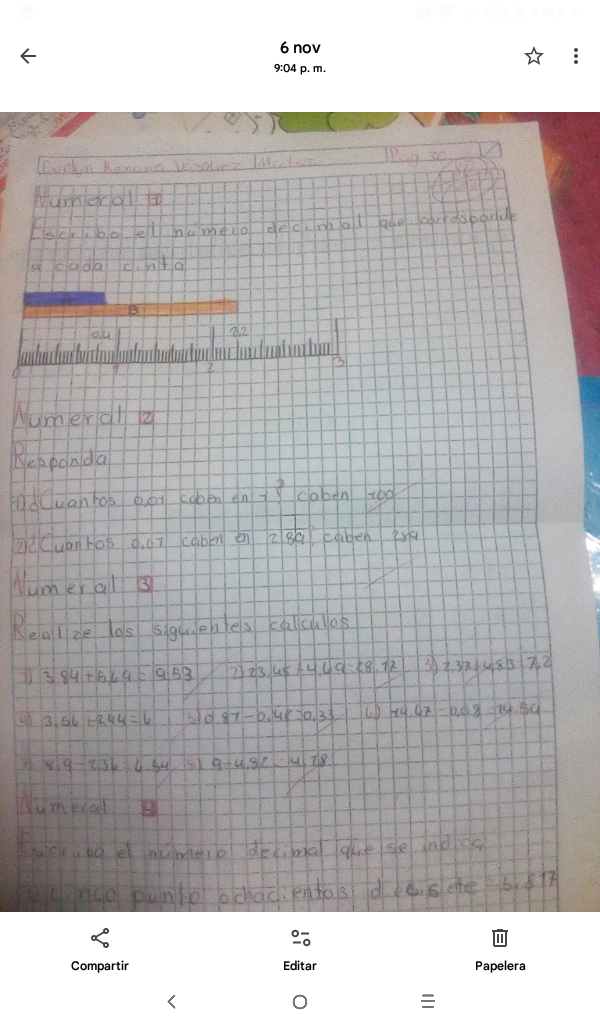 6 nov
9:04 p. m.
Numeral 1
Escriba el número decimal que corresponde
a cada cinta
B
0,4 2,2
0 1 2 3
Numeral 2
Responda
1) ¿Cuantos 0,01 caben en 1? caben 100
2) ¿Cuantos 0,01 caben en 2,89? caben 289
Numeral 3
Realize los siguientes calculos
1) 3,84+5,69=9,53 2) 23,45+4,69=28,12 3) 2,37+4,83=7,2
4) 3,56+2,44=6 5) 0,87-0,48=0,33 6) 14,62-0,08=14,54
7) 8,9-2,36=6,54 8) 9-4,82=4,28
Numeral 4
Escriba el número decimal que se indica
cinco punto ochocientos diesisete 5,817
Compartir
Editar
Papelera